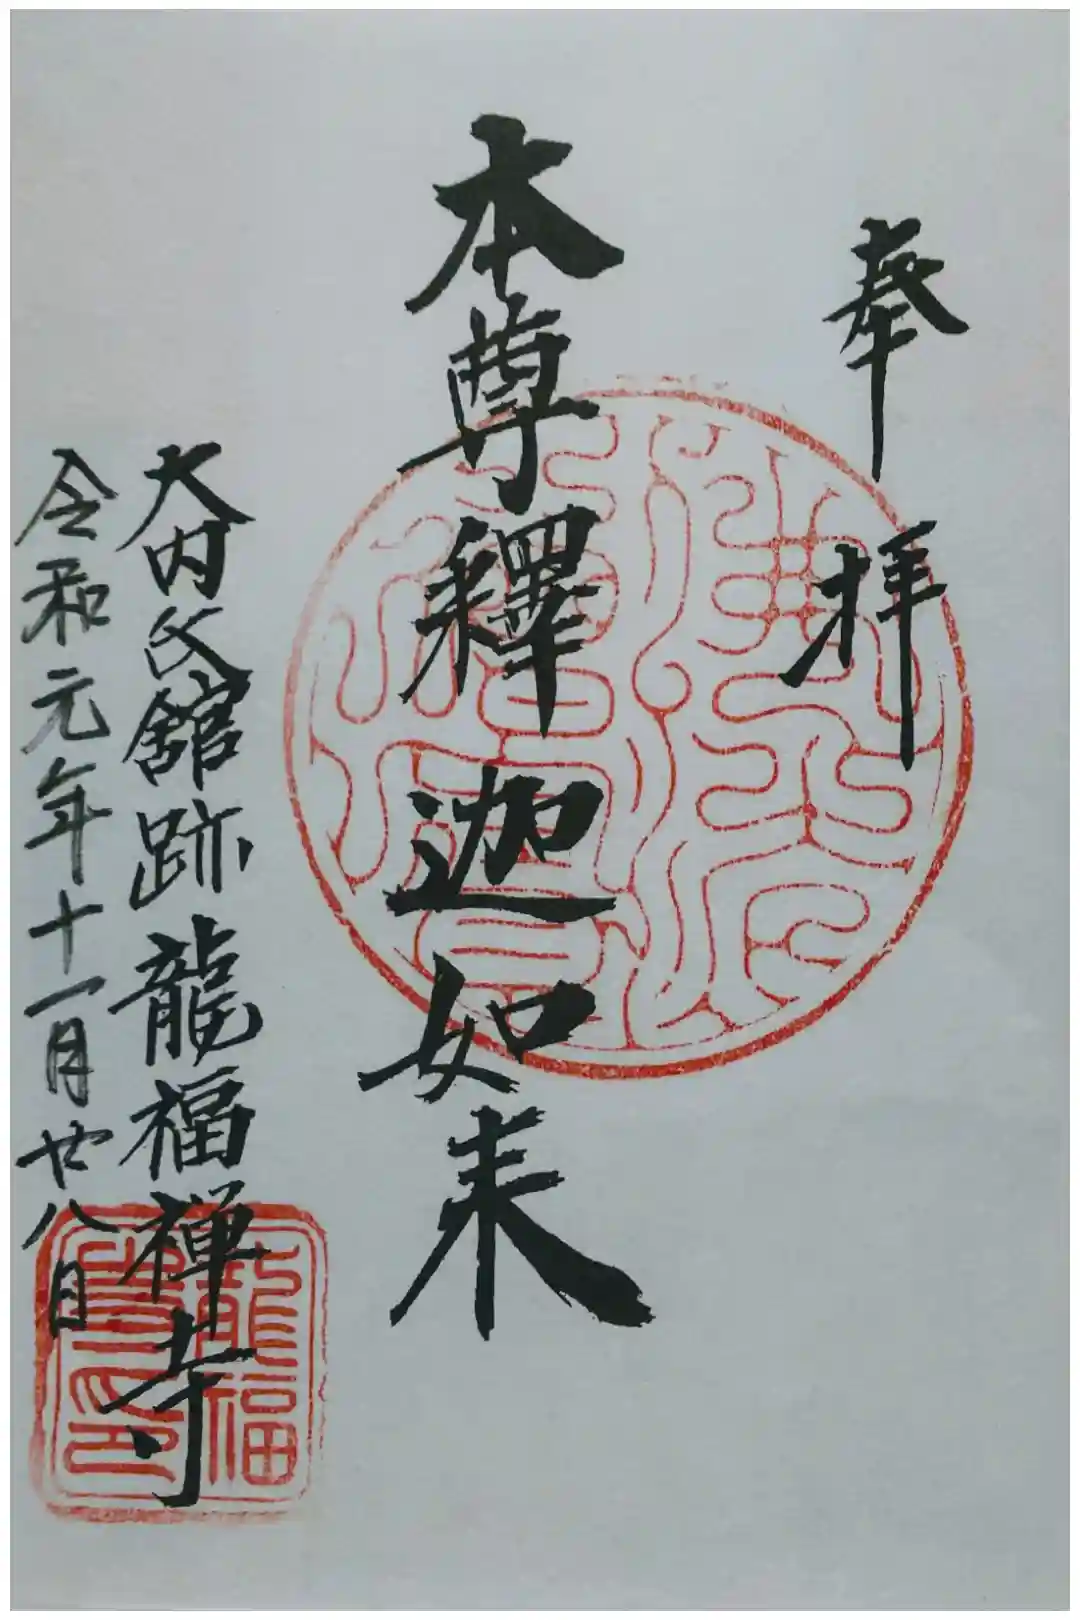 奉拝
本尊釋迦如来
大内氏舘跡龍福禅寺
令和元年十一月廿八日
龍福
寺印